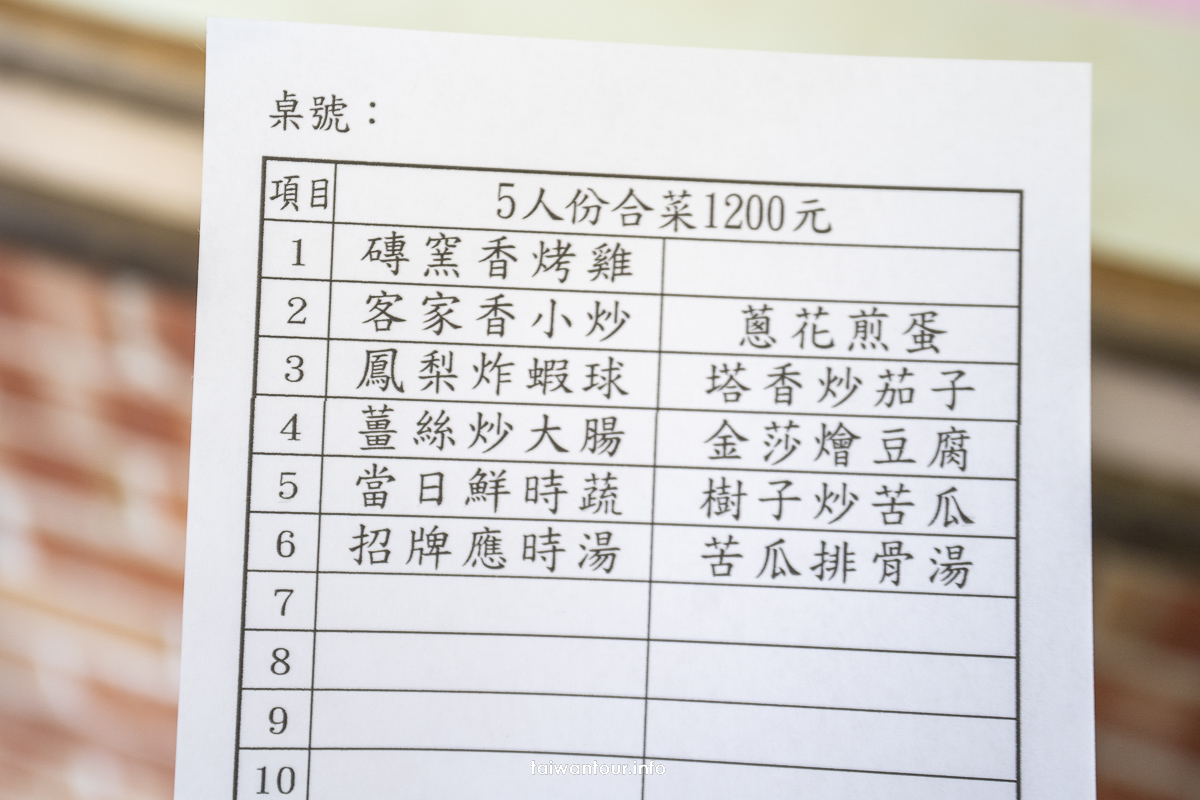 桌號：
項目 5人份合菜1200元
1 磚窯香烤雞
2 客家香小炒 蔥花煎蛋
3 鳳梨炸蝦球 塔香炒茄子
4 薑絲炒大腸 金莎燴豆腐
5 當日鮮時蔬 樹子炒苦瓜
6 招牌應時湯 苦瓜排骨湯
7
8
9
10
taiwantour.info